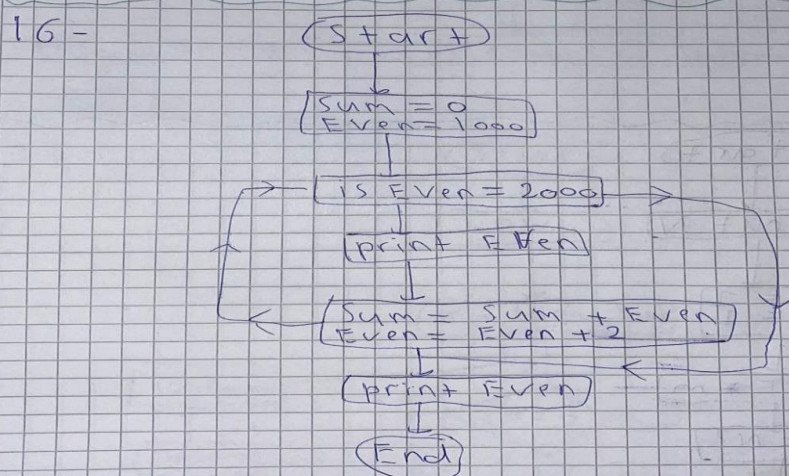 16-
Start
Sum = 0
Even = 1000
is Even = 2000
print Even
Sum = Sum + Even
Even = Even + 2
print Even
End